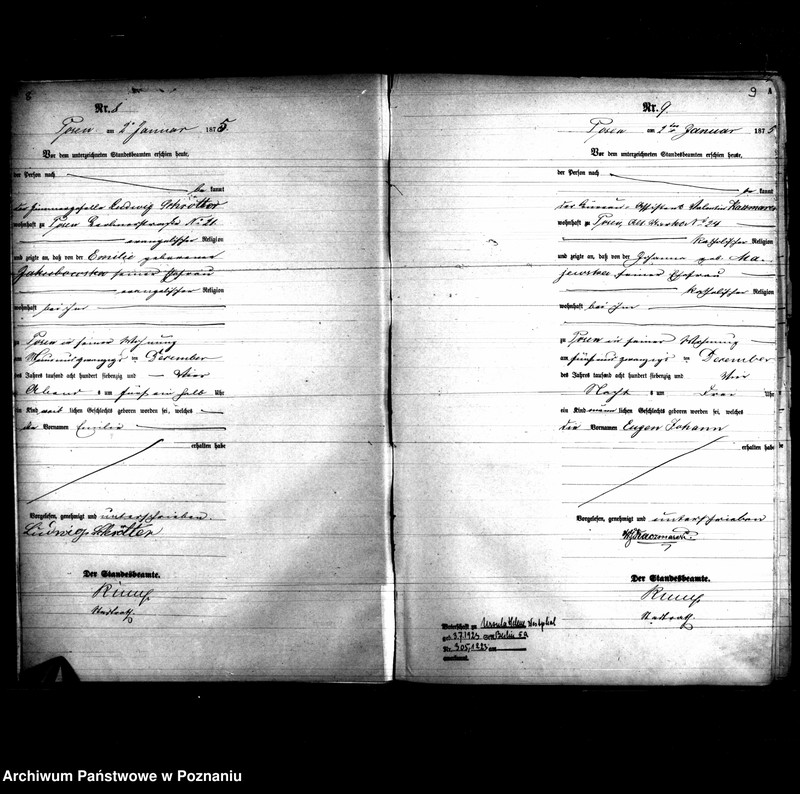 8
Nr. 8
Posen am 2 Januar 1875.
Vor dem unterzeichneten Standesbeamten erschien heute,
der Person nach
be kannt
der Zimmergeselle Ludwig Schrötter
wohnhaft zu Posen No 21
evangelischer Religion
und zeigte an, daß von der Emilie geborenen
Jakubowska seiner Ehefrau
evangelischer Religion
wohnhaft bei ihm
zu Posen in seiner Wohnung
am Neunundzwanzigsten December
des Jahres tausend acht hundert siebenzig und Vier
Abend s um fünf ein halb Uhr
ein Kind weib lichen Geschlechts geboren worden sei, welches
die Vornamen Emilie
erhalten habe
Vorgelesen, genehmigt und unterschrieben.
Ludwig Schrötter
Der Standesbeamte.
Rump
Stadtrath.
9
Nr. 9.
Posen am 2ten Januar 1875
Vor dem unterzeichneten Standesbeamten erschien heute,
der Person nach
be kannt
der Bureau-Assistent Valentin Kaczmarek
wohnhaft zu Posen, Alt Markt No 24
katholischer Religion
und zeigte an, daß von der Johanna geb. Ma-
jewska seiner Ehefrau
katholischer Religion
wohnhaft bei ihm
zu Posen in seiner Wohnung
am fünfundzwanzigsten December
des Jahres tausend acht hundert siebenzig und Vier
Nacht s um Drei Uhr
ein Kind männ lichen Geschlechts geboren worden sei, welches
die Vornamen Eugen Johann
erhalten habe
Vorgelesen, genehmigt und unterschrieben
Kaczmarek
Der Standesbeamte.
Rump
Stadtrath.
Ursula Helene Westphal
geb. 3.7.1923 Berlin
Nr. 305, 1923
Archiwum Państwowe w Poznaniu